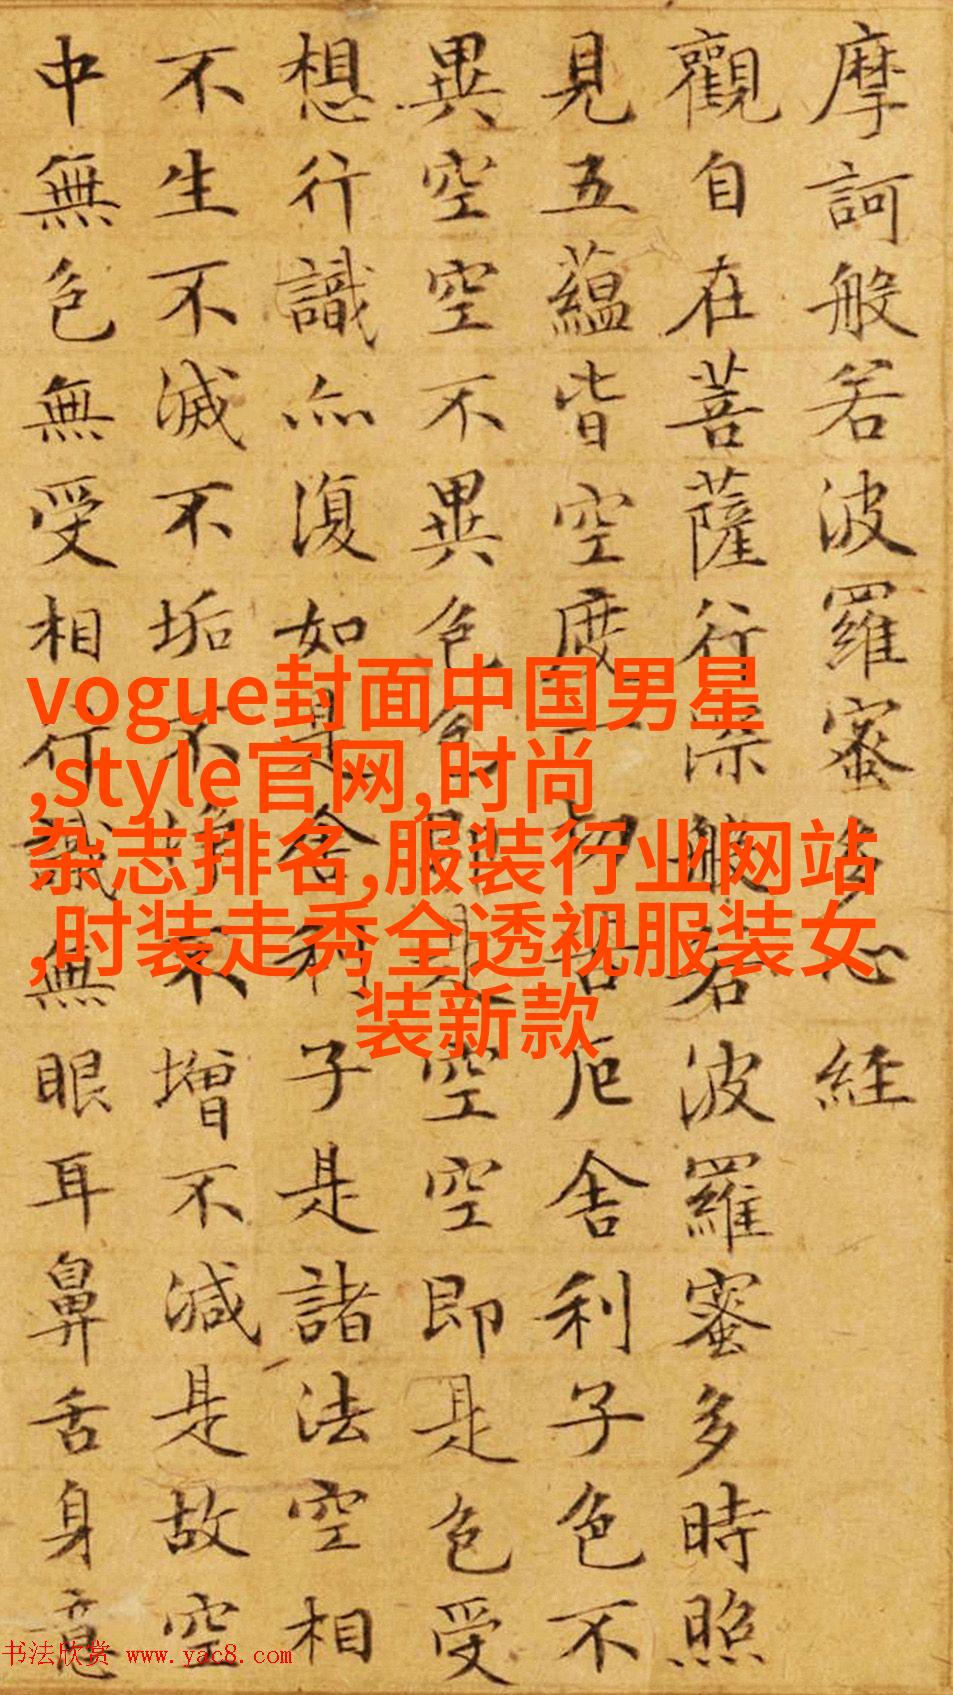 摩訶般若波羅蜜多心経
觀自在菩薩行深般若波羅蜜多時照
見五蘊皆空度一切苦厄舍利子色不
異空空不異色色即是空空即是色受
想行識亦復如是舍利子是諸法空相
不生不滅不垢不淨不增不減是故空
中無色無受相行識無眼耳鼻舌身意
vogue封面中国男星
,style官网,时尚
杂志排名,服装行业网站
,时装走秀全透视服装女
装新款
书法欣赏 www.yac8.com